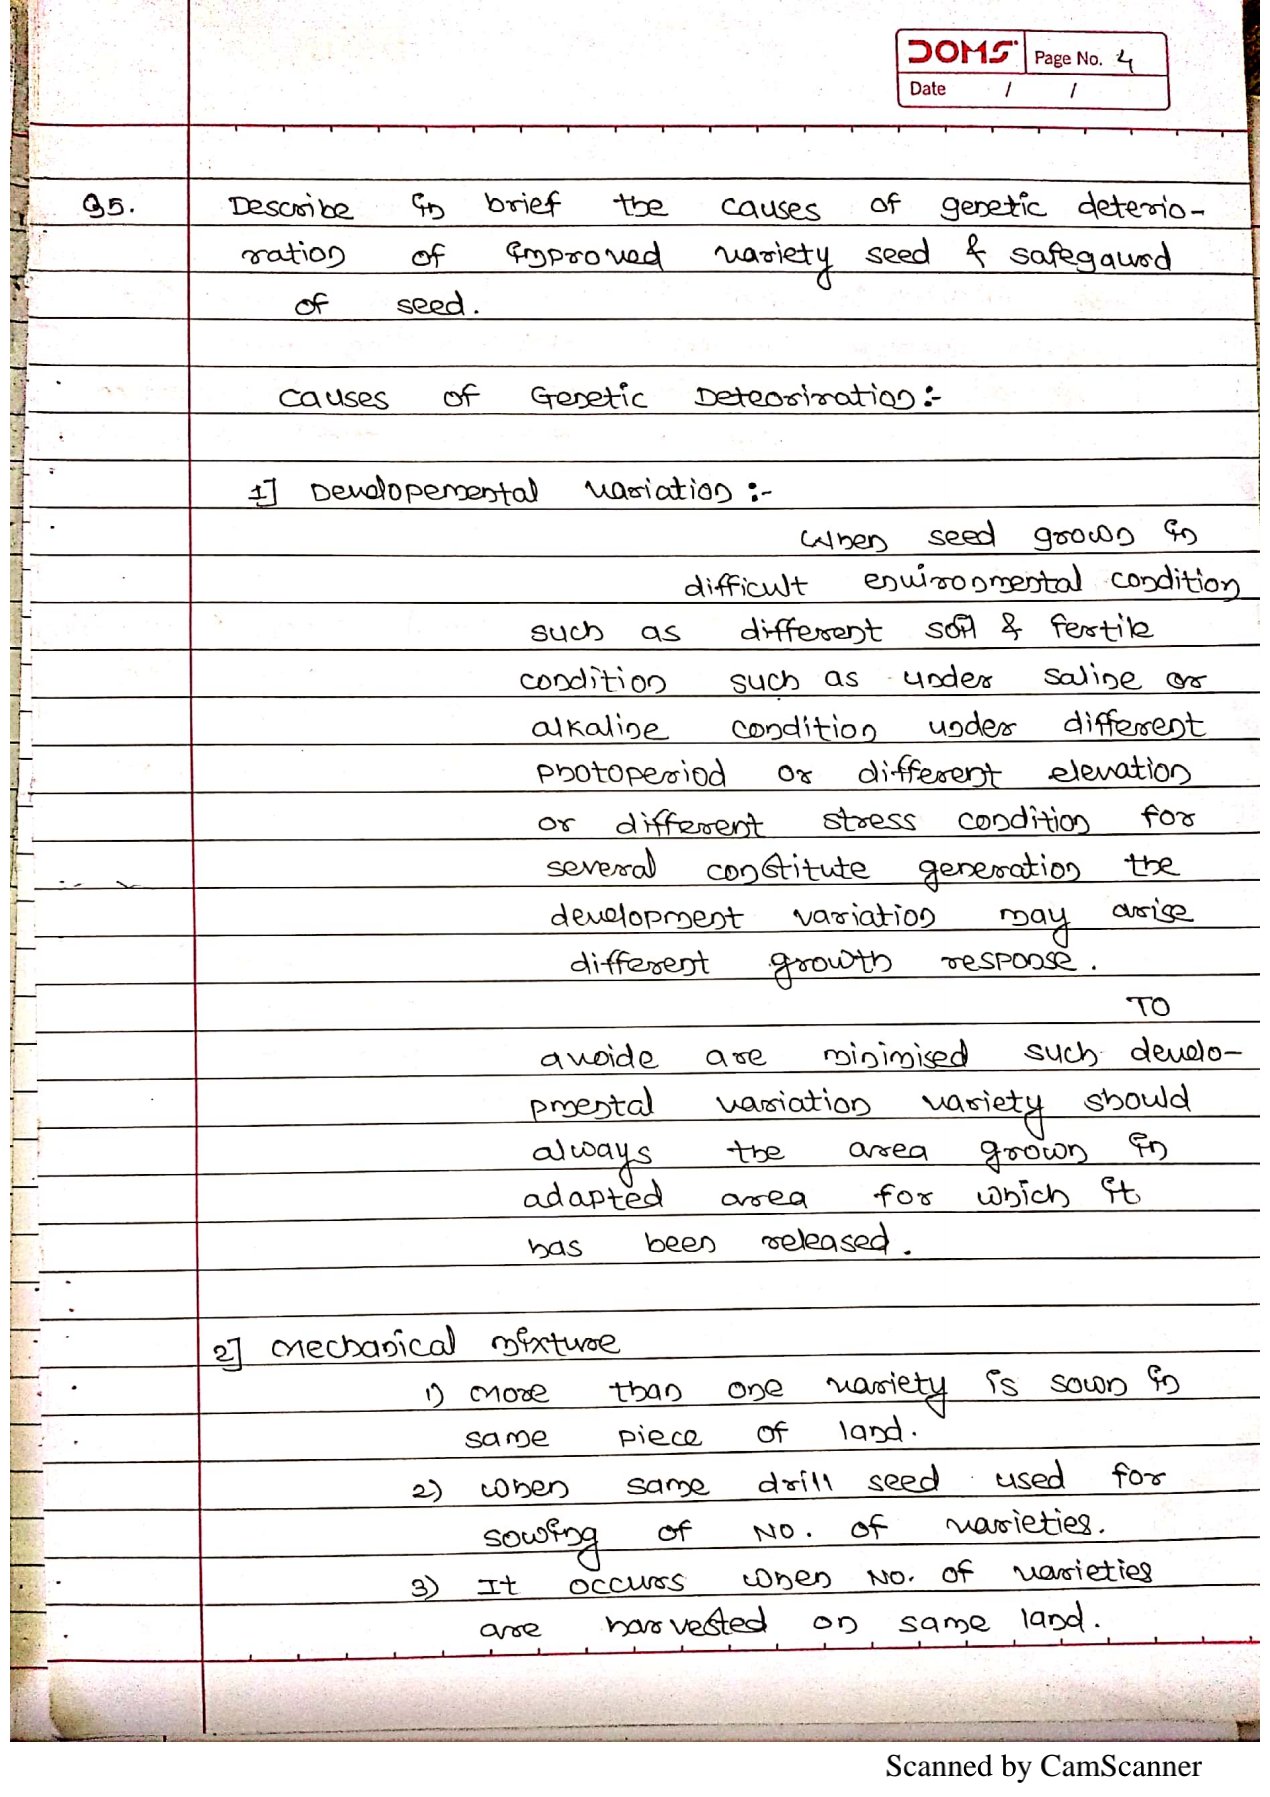 DOMS Page No. 4
Date / /
Q5. Describe in brief the causes of genetic deterio-
ration of improved variety seed & safegaurd
of seed.
causes of Genetic Deteoriration :-
1] Developemental variation :-
When seed grown in
difficult environmental condition
such as different soil & fertile
condition such as under saline or
alkaline condition under different
photoperiod or different elevation
or different stress condition for
several constitute generation the
development variation may arise
different growth response.
TO
avoide are minimised such develo-
pmental variation variety should
always the area grown in
adapted area for which it
has been released.
2] Mechanical mixture
1) More than one variety is sown in
same piece of land.
2) when same drill seed used for
sowing of NO. of varieties.
3) It occurs when NO. of varieties
are harvested on same land.
Scanned by CamScanner